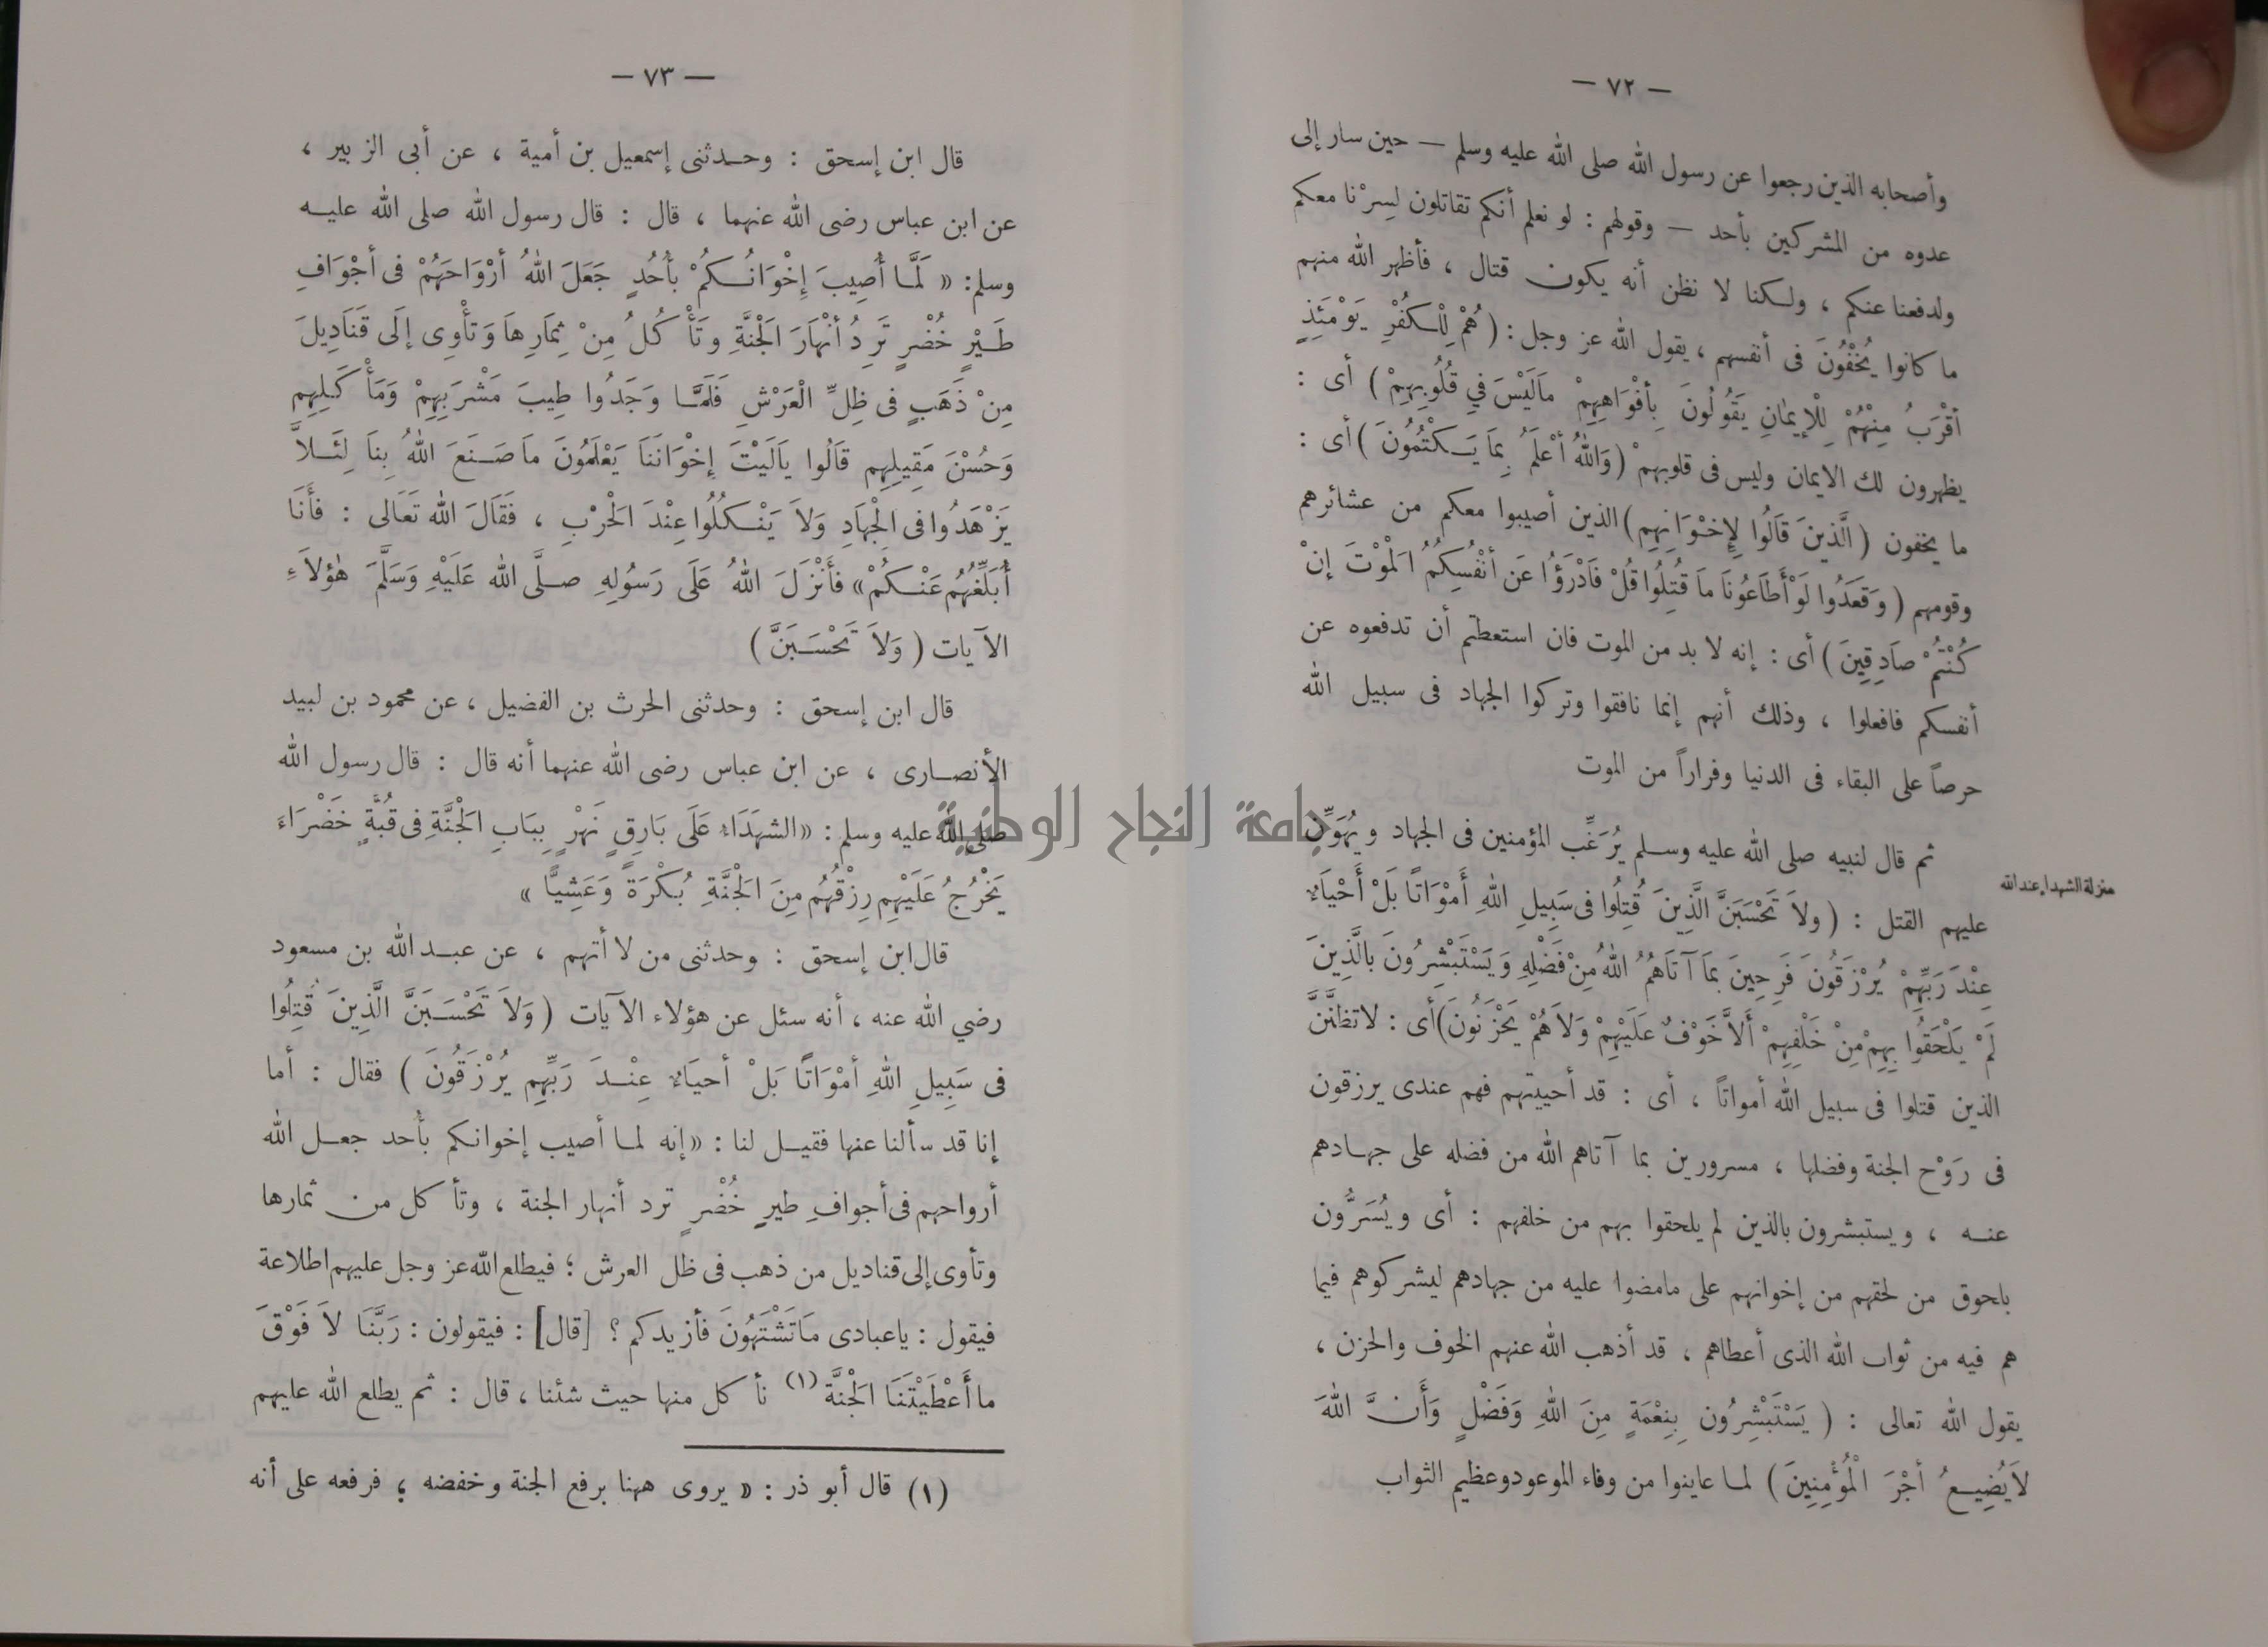 — ٧٢ —
وأصحابه الذين رجعوا عن رسول الله صلى الله عليه وسلم — حين سار إلى
عدوه من المشركين بأحد — وقولهم : لو نعلم أنكم تقاتلون لسِرْنا معكم
ولدفعنا عنكم ، ولكنا لا نظن أنه يكون قتال ، فأظهر الله منهم
ما كانوا يُخْفُونَ فى أنفسهم ، يقول الله عز وجل : ( هُمْ لِلْكفُرِْ يَوْمَئِذٍ
أقْرَبُ مِنْهُمْ لِلْإيمَانِ يَقُولُونَ بِأفْوَاهِهِمْ مَالَيْسَ فِي قُلُوبِهِمْ ) أى :
يظهرون لك الايمان وليس فى قلوبهمْ ( وَاللهُ أعْلَمُ بِمَا يَكْتُمُونَ ) أى :
ما يخفون ( الَّذِينَ قَالُوا لِإِخْوَانِهِمِ ) الذين أصيبوا معكم من عشائرهم
وقومهم ( وَقَعَدُوا لَوْ أَطَاعُونَا مَا قُتِلُوا قُلْ فَادْرَؤُا عَن أَنْفُسِكُمُ الْمَوْتَ إنْ
كُنْتُمْ صَادِقِينَ ) أى : إنه لا بد من الموت فان استعطتم أن تدفعوه عن
أنفسكم فافعلوا ، وذلك أنهم إنما نافقوا وتركوا الجهاد فى سبيل الله
حرصاً على البقاء فى الدنيا وفراراً من الموت
ثم قال لنبيه صلى الله عليه وسلم يُرَغِّب المؤمنين فى الجهاد ويُهَوِّن
منزلة الشهداء عند الله
عليهم القتل : ( ولاَ تَحْسَبَنَّ الَّذِينَ قُتِلُوا فى سَبِيلِ اللهِ أَمْوَاتًا بَلْ أَحْيَاءٌ
عِنْدَ رَبِّهِمْ يُرْزَقُونَ فَرِحِينَ بِمَا آتَاهُمُ اللهُ مِنْ فَضْلِهِ وَيَسْتَبْشِرُونَ بِالَّذِينَ
لَمْ يَلْحَقُوا بِهِمْ مِنْ خَلْفِهِمْ أَلاَّ خَوْفٌ عَلَيْهِمْ وَلاَ هُمْ يَحْزَنُونَ ) أى : لا تظنَّنَّ
الذين قتلوا فى سبيل الله أمواتاً ، أى : قد أحييتهم فهم عندى يرزقون
فى رَوْح الجنة وفضلها ، مسرورين بما آتاهم الله من فضله على جهادهم
عنه ، ويستبشرون بالذين لم يلحقوا بهم من خلفهم : أى ويُسَرُّون
بلحوق من لحقهم من إخوانهم على مامضوا عليه من جهادهم ليشركوهم فيما
هم فيه من ثواب الله الذى أعطاهم ، قد أذهب الله عنهم الخوف والحزن ،
يقول الله تعالى : ( يَسْتَبْشِرُون بِنِعْمَةٍ مِنَ اللهِ وَفَضْلٍ وَأَنَّ اللهَ
لاَيُضِيعُ أجْرَ الْمُؤْمِنِينَ ) لما عاينوا من وفاء الموعود وعظيم الثواب
— ٧٣ —
قال ابن إسحق : وحدثنى إسمعيل بن أمية ، عن أبى الزبير ،
عن ابن عباس رضى الله عنهما ، قال : قال رسول الله صلى الله عليه
وسلم : « لَمَّا أُصِيبَ إِخْوَانُكُمْ بأُحُدٍ جَعَلَ اللهُ أرْوَاحَهُمْ فى أجْوَافِ
طَيْرٍ خُضْرٍ تَرِدُ أنْهَارَ الْجَنَّةِ وتَأْكُلُ مِنْ ثِمَارِهَا وَتَأْوِى إلَى قَنَادِيلَ
مِنْ ذَهَبٍ فى ظِلِّ الْعَرْشِ فَلَمَّا وَجَدُوا طِيبَ مَشْرَبِهِمْ وَمَأْكَلِهِمِ
وَحُسْنَ مَقِيلِهِم قَالُوا يالَيْتَ إخْوَانَنَا يَعْلَمُونَ مَا صَنَعَ اللهُ بِنَا لِئَلاَّ
يَزْهَدُوا فى الْجِهَادِ وَلاَ يَنْكُلُوا عِنْدَ الْحَرْبِ ، فَقَالَ الله تَعَالى : فأَنَا
أُبَلِّغُهُم عَنْكُمْ » فأَنْزَلَ اللهُ عَلَى رَسُولِهِ صلَّى الله عَلَيْهِ وَسَلَّمَ هٰؤلاَءِ
الآيات ( وَلاَ تَحْسَبَنَّ )
قال ابن إسحق : وحدثنى الحرث بن الفضيل ، عن محمود بن لبيد
الأنصارى ، عن ابن عباس رضى الله عنهما أنه قال : قال رسول الله
صلى الله عليه وسلم : « الشهَدَاءُ عَلَى بَارِقٍ نَهْرٍ بِبَابِ الْجَنَّةِ فى قُبَّةٍ خَضْرَاءَ
يَخْرُجُ عَلَيْهِم رِزْقُهُم مِنَ الْجَنَّةِ بُكْرَةً وَعَشِيًّا »
قال ابن إسحق : وحدثنى من لا أتهم ، عن عبد الله بن مسعود
رضي الله عنه ، أنه سئل عن هؤلاء الآيات ( وَلاَ تَحْسَبَنَّ الَّذِينَ قُتِلُوا
فى سَبِيلِ اللهِ أمْوَاتًا بَلْ أحيَاءٌ عِنْدَ رَبِّهِم يُرْزَقُونَ ) فقال : أما
إنا قد سألنا عنها فقيل لنا : « إنه لما أصيب إخوانكم بأحد جعل الله
أرواحهم فى أجوافِ طيرٍ خُضْرٍ ترد أنهار الجنة ، وتأكل من ثمارها
وتأوى إلى قناديل من ذهب فى ظل العرش ؛ فيطلع الله عز وجل عليهم اطلاعة
فيقول : ياعبادى مَاتَشْتَهُونَ فأزيدكم ؟ [قال] : فيقولون : رَبَّنَا لاَ فَوْقَ
ما أَعْطَيْتَنَا الْجَنَّة (١) نأكل منها حيث شئنا ، قال : ثم يطلع الله عليهم
(١) قال أبو ذر : « يروى ههنا برفع الجنة وخفضه ؛ فرفعه على أنه
جامعة النجاح الوطنية